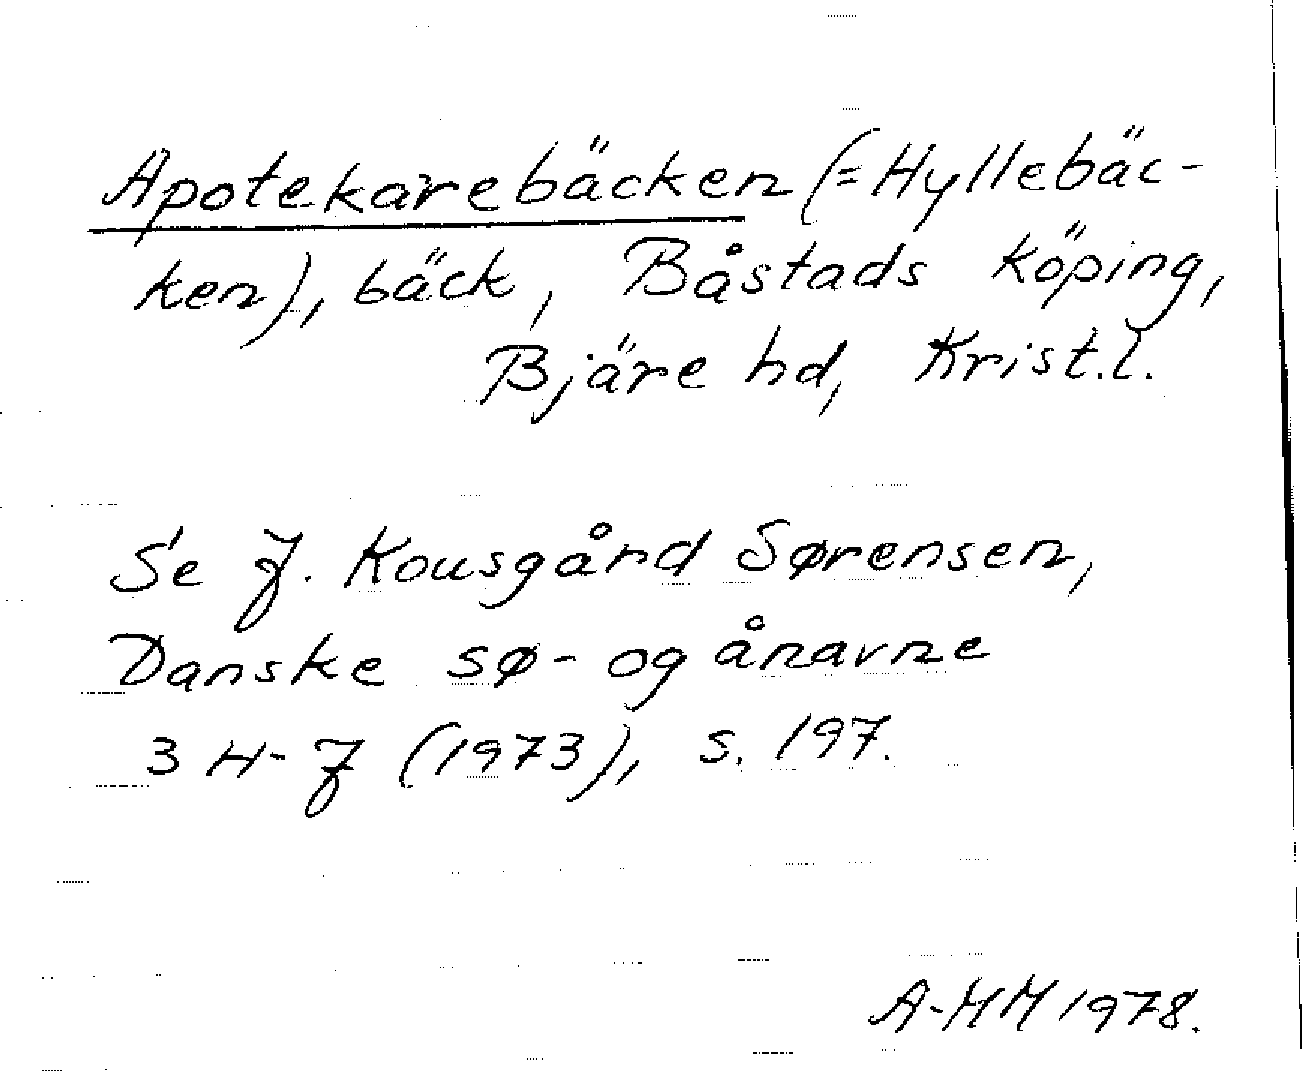 Apotekarebäcken (=Hyllebäc-
ken), bäck, Båstads köping,
Bjäre hd, Krist.l.
Se J. Kousgård Sørensen,
Danske sø- og ånavne
3 H-J (1973), s. 197.
A-MM 1978.